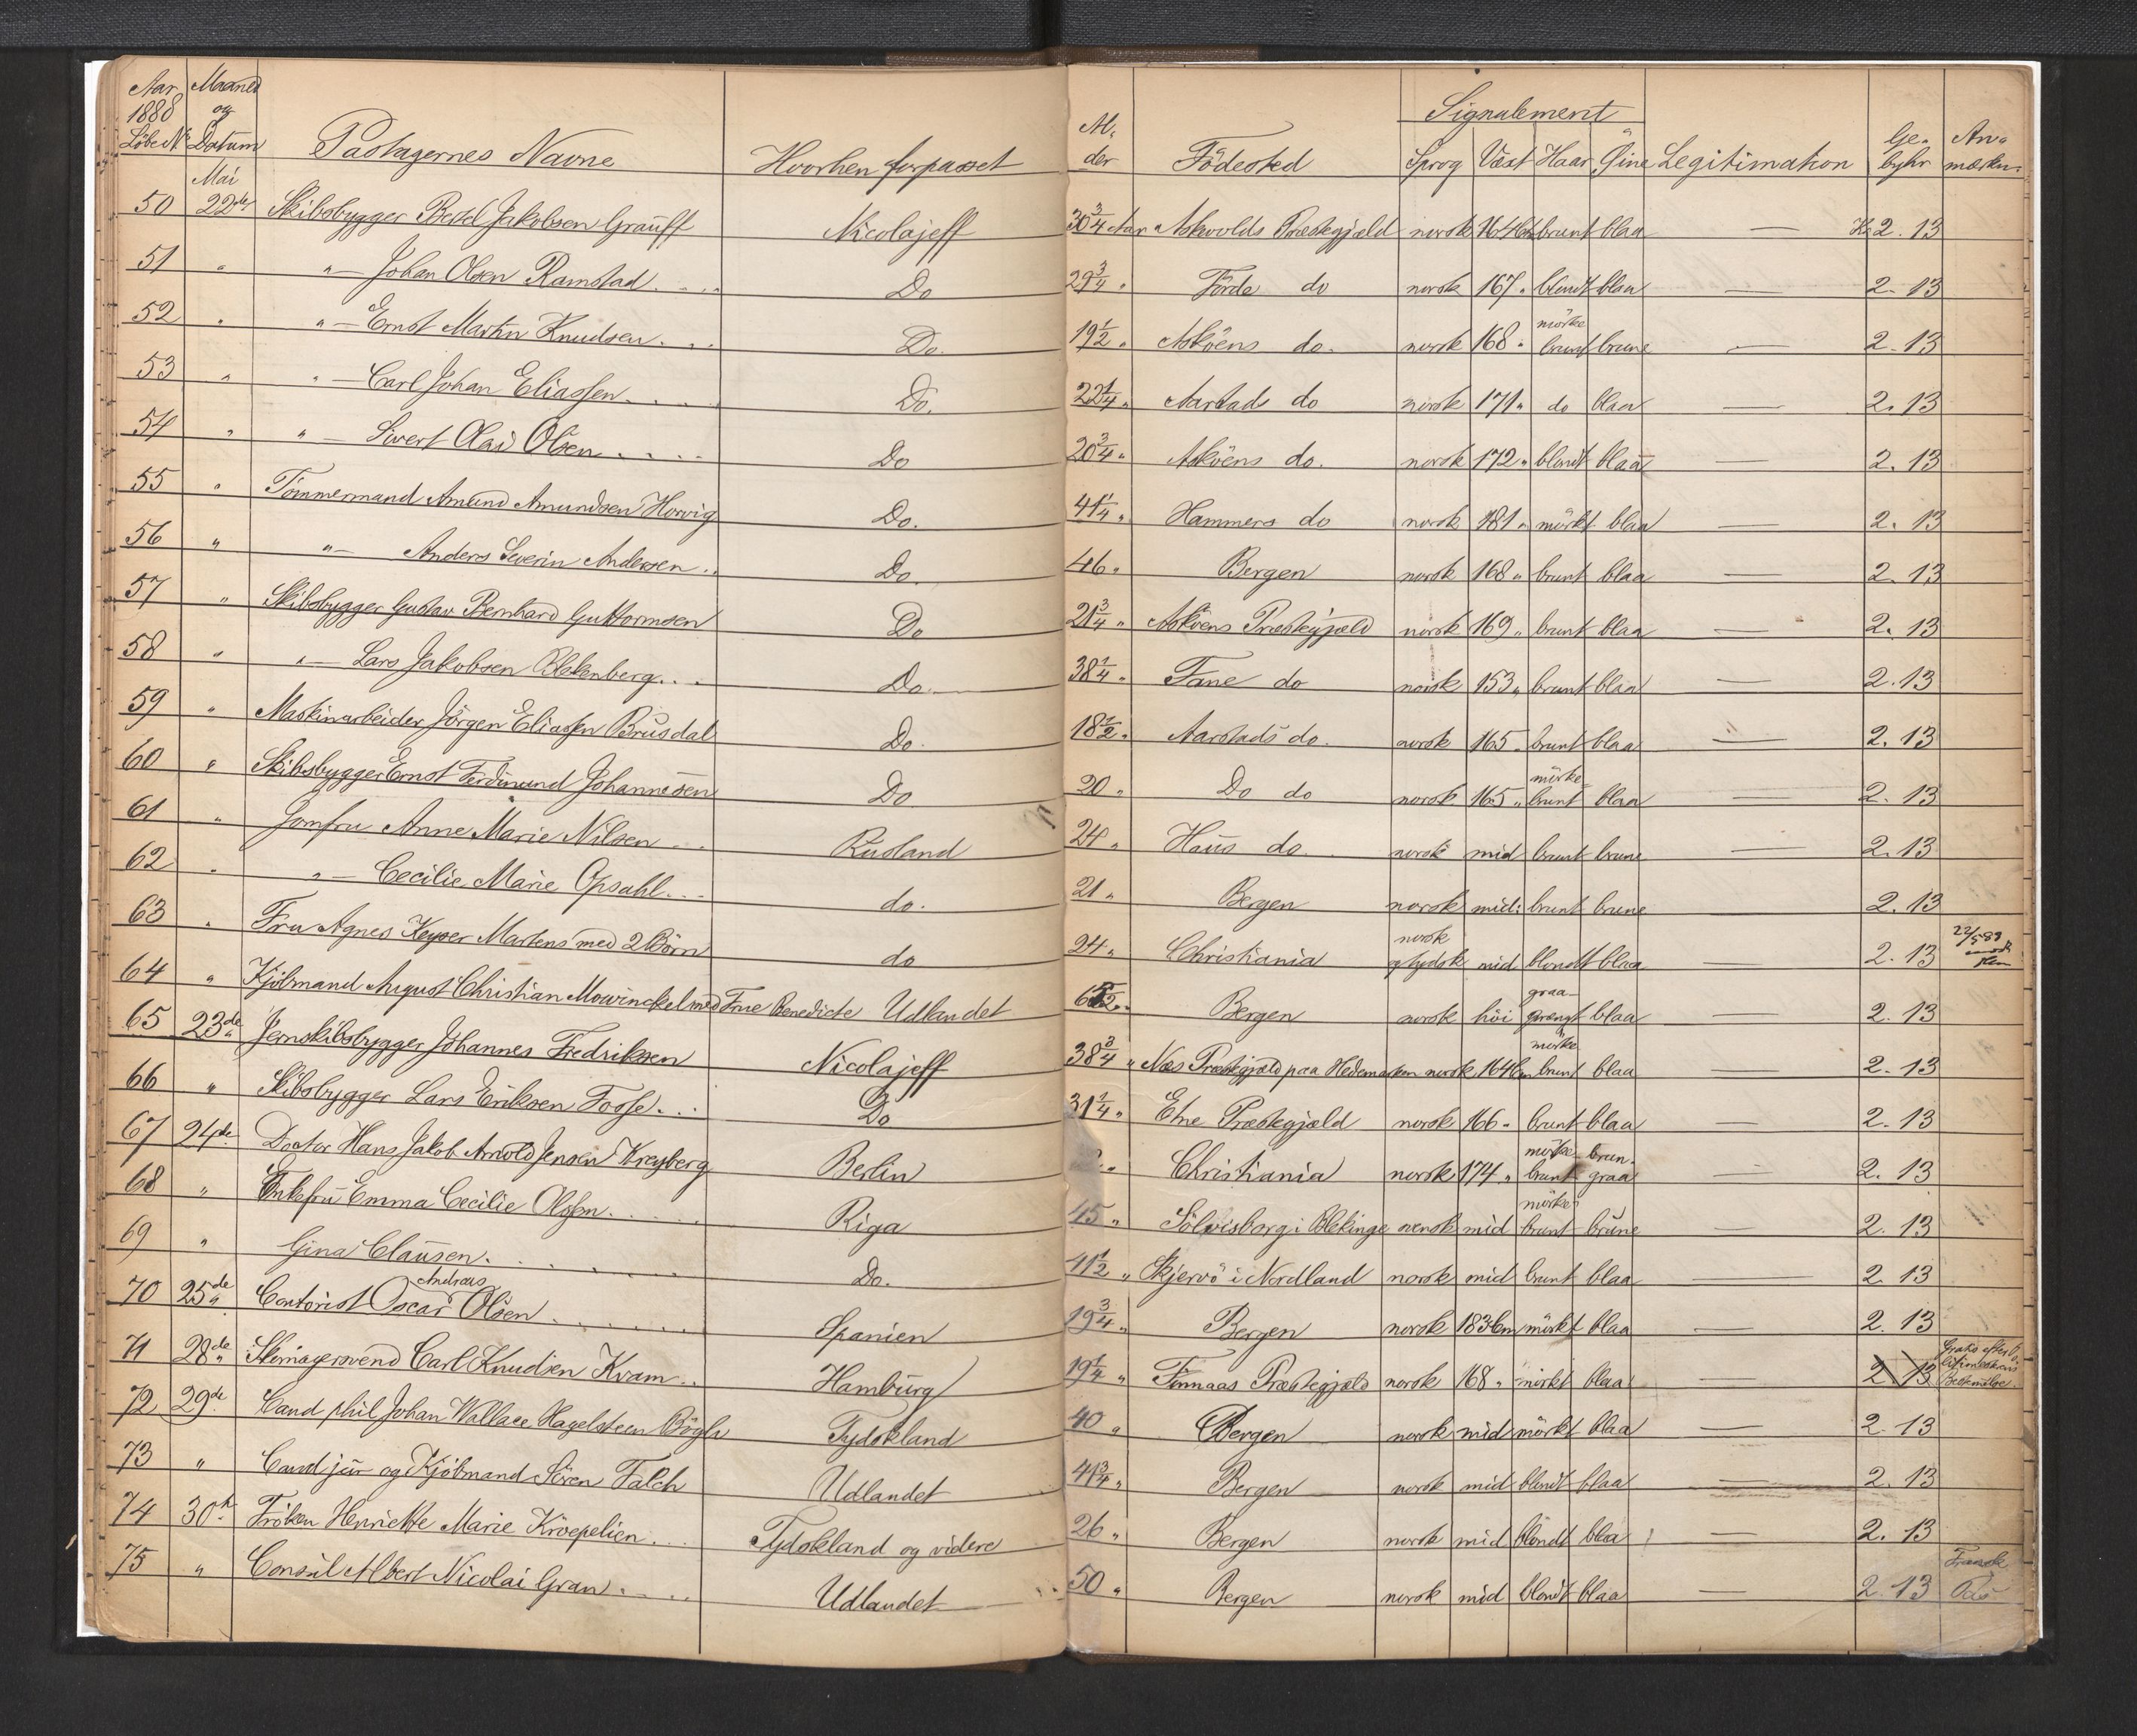 Aar Maaned
1888 og Signalement
Löbe No Datum Pastagernes Navne Hvorhen forpasset Al-der Födested Sprog Væxt Haar Öine Legitimation Ge-byhr An-mærkn.
Mai
50 22de Skibsbygger Jakobsen Grauff Nicolajeff 30 3/4 Aar Askvolds Præstegjæld norsk 164 Cm brunt blaa — Kr 2.13
51 " "— Johan Olsen Ramstad Do 29 3/4 " Förde do norsk 167 " blondt blaa — 2.13
52 " "— Ernst Martin Knudsen Do. 19 1/2 " Asköens do. norsk 168 " mörke brunt brune — 2.13
53 " "— Carl Johan Eliassen Do. 22 1/4 " Aarstads do norsk 171 " do blaa — 2.13
54 " "— Sivert Olai Olsen Do 20 3/4 " Asköens do. norsk 172 " blondt blaa — 2.13
55 " Tömmermand Amund Amundsen Horvig Do. 41 1/4 " Hammers do norsk 181 " mörkt blaa — 2.13
56 " "— Anders Severin Andersen Do. 46 " Bergen norsk 168 " brunt blaa — 2.13
57 " Skibsbygger Gustav Bernhard Guttormsen Do 21 3/4 " Asköens Præstegjæld norsk 169 " brunt blaa — 2.13
58 " "— Lars Jakobsen Blekenberg Do. 38 1/4 " Fane do norsk 153 " brunt blaa — 2.13
59 " Maskinarbeider Jörgen Eliassen Brusdal Do. 18 1/2 " Aarstads do. norsk 165 " brunt blaa — 2.13
60 " Skibsbygger Ernst Ferdinand Johannesen Do. 20 " Do do norsk 165 " mörke brunt blaa — 2.13
61 " Jomfru Anne Marie Nilsen Rusland 24 " Haus do norsk mid brunt brune — 2.13
62 " "— Cecilie Marie Opsahl do. 21 " Bergen norsk mid: brunt brune 2.13
63 " Fru Agnes Keyser Martens med 2 Börn do 24 " Christiania norsk og tydsk mid blondt blaa 2.13 22/5 89
64 " Kjöbmand August Christian Mowinckel med Frue Benedicte Udlandet Bergen norsk höi graa-sprængt blaa — 2.13
65 23de Jernskibsbygger Johannes Fredriksen Nicolajeff 38 3/4 " Næs Præstegjæld paa Hedemarken norsk 164 Cm mörke brunt blaa — 2.13
66 " Skibsbygger Lars Eriksen Fosse Do 31 1/4 " Etne Præstegjæld norsk 166 " brunt blaa — 2.13
67 24de Doctor Hans Jakob Arnold Jensen Kreyberg Berlin Christiania norsk 174 " mörke brunt brun-graa — 2.13
68 " Enkefru Emma Cecilie Olsen Riga 45 " Sölvisborg i Blekinge svensk mid mörke brunt brune 2.13
69 " Gina Clausen Do. 41 1/2 " Skjervö i Nordland norsk mid brunt blaa — 2.13
70 25de Contorist Oscar Andreas Olsen Spanien 19 3/4 " Bergen norsk 183 Cm mörkt blaa 2.13
71 28de Carl Knudsen Kvam Hamburg 19 1/4 " Finnaas Præstegjæld norsk 168 " mörkt blaa — 2 13 Gratis efter
72 29de Cand phil Johan Wallace Hagelsteen Bögh Tydskland 40 " Bergen norsk mid mörkt blaa — 2.13
73 " Cand jur og Kjöbmand Sören Falch Udlandet 41 3/4 " Bergen norsk mid blondt blaa — 2.13
74 30te Fröken Henriette Marie Kroepelien Tydskland og videre 26 " Bergen norsk mid blondt blaa — 2.13
75 " Consul Albert Nicolai Gran Udlandet 50 " Bergen norsk mid blondt blaa — 2.13 Fransk